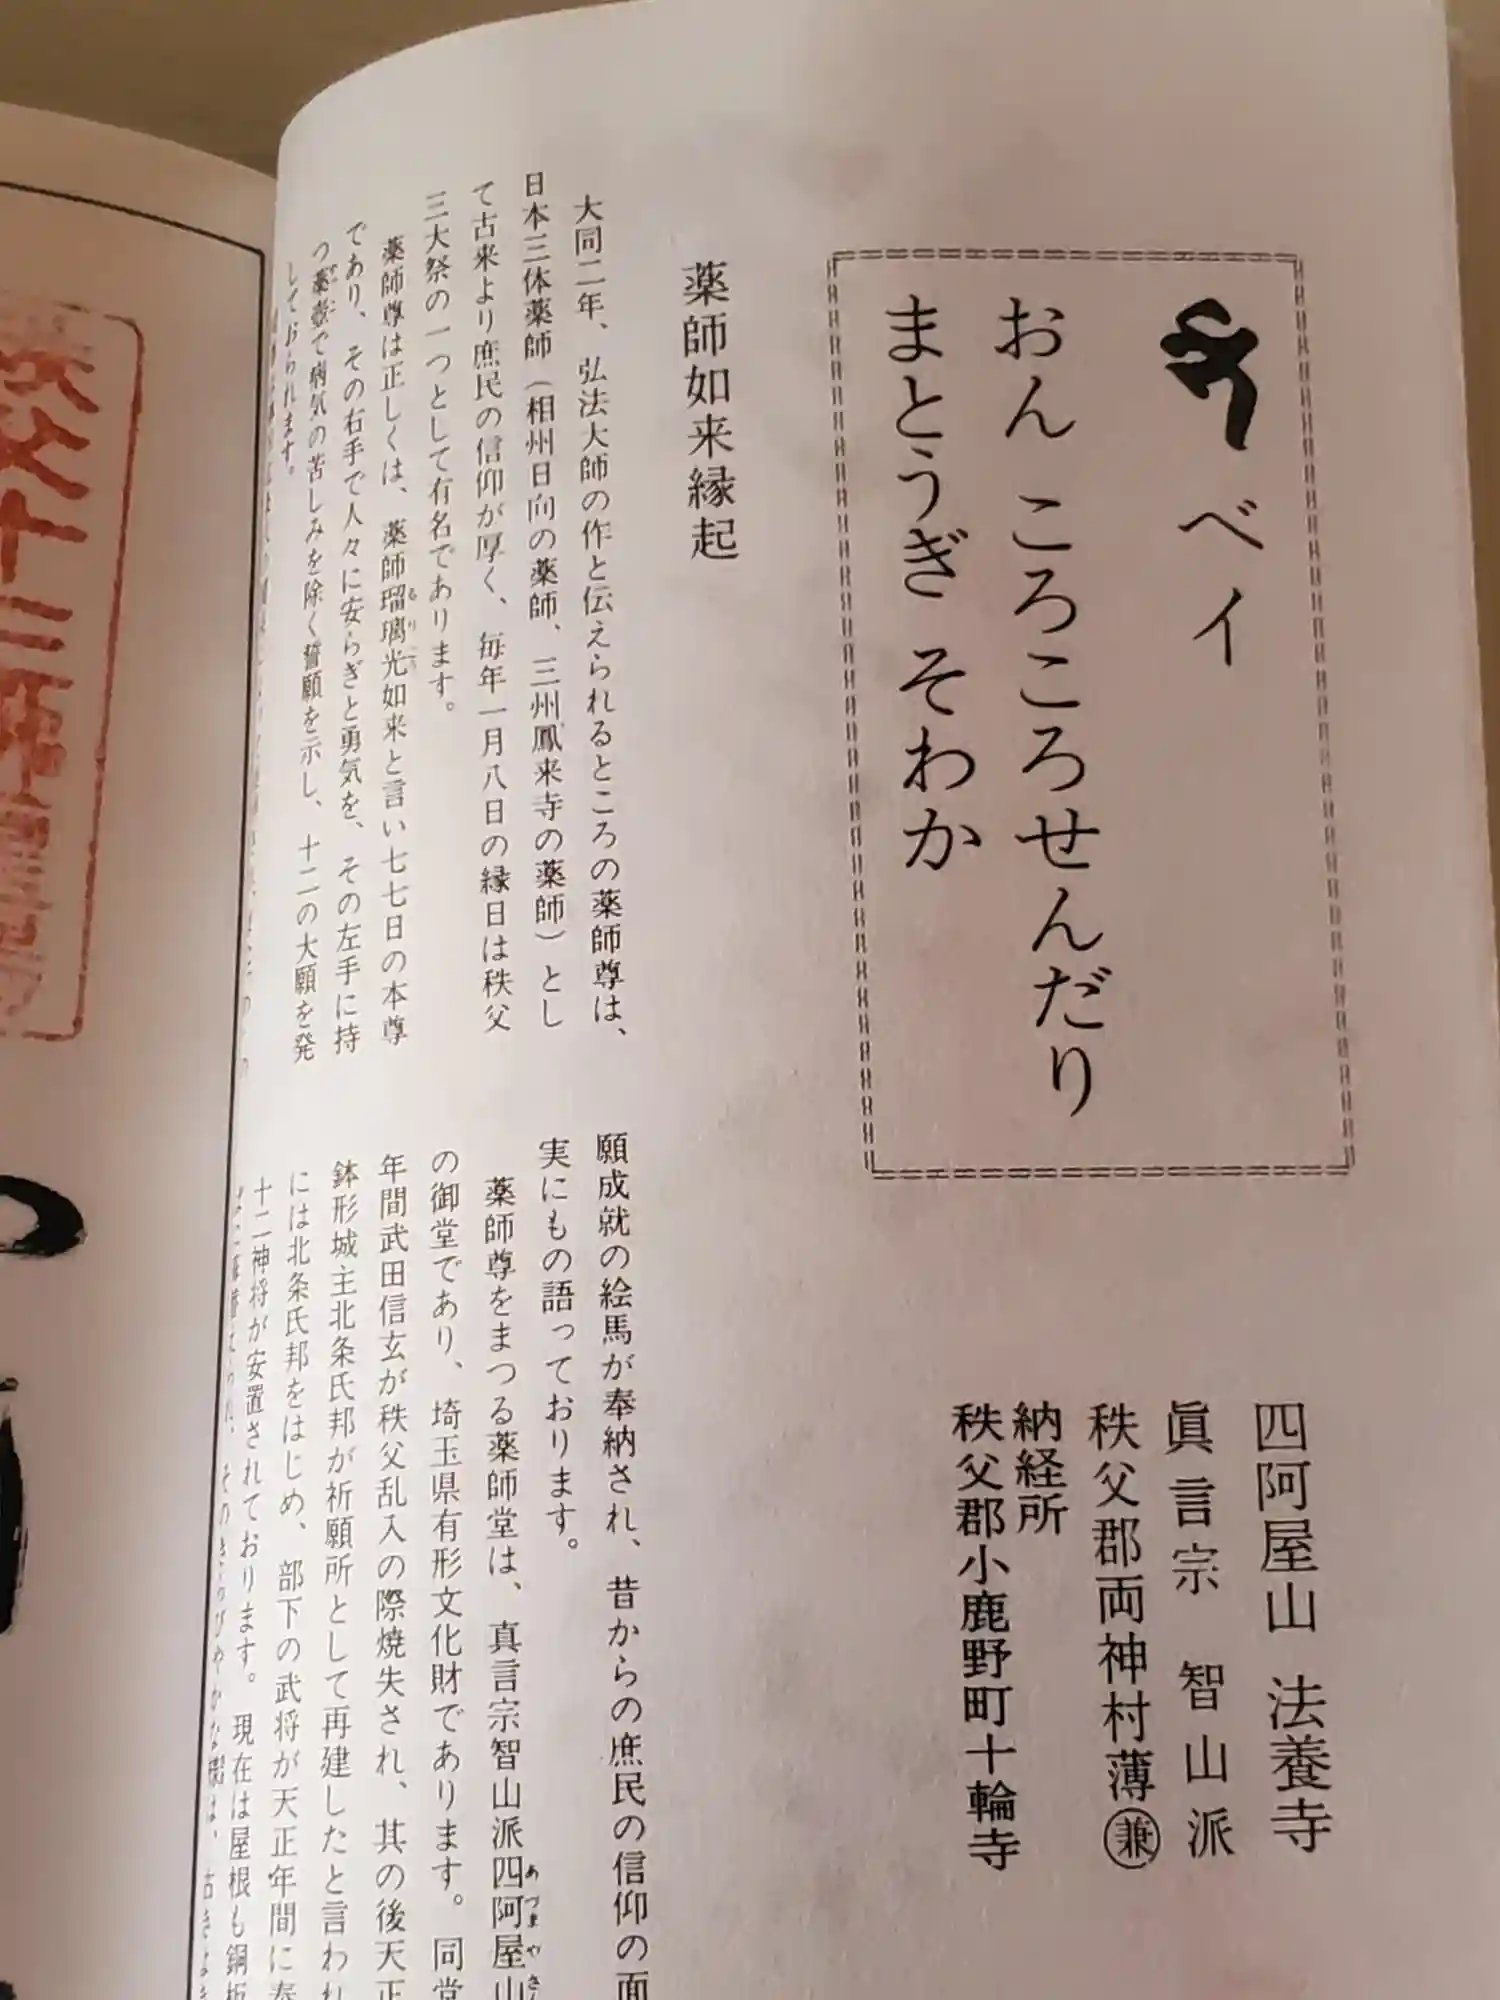 ベイ
おん ころころせんだり
まとうぎ そわか
四阿屋山 法養寺
眞言宗 智山派
秩父郡両神村薄㊒
納経所
秩父郡小鹿野町十輪寺
薬師如来縁起
大同二年、弘法大師の作と伝えられるところの薬師尊は、
日本三体薬師（相州日向の薬師、三州鳳来寺の薬師）とし
て古来より庶民の信仰が厚く、毎年一月八日の縁日は秩父
三大祭の一つとして有名であります。
薬師尊は正しくは、薬師瑠璃光如来と言い七七日の本尊
であり、その右手で人々に安らぎと勇気を、その左手に持
つ薬壺で病気の苦しみを除く誓願を示し、十二の大願を発
しておられます。
願成就の絵馬が奉納され、昔からの庶民の信仰の面
実にもの語っております。
薬師尊をまつる薬師堂は、真言宗智山派四阿屋山
の御堂であり、埼玉県有形文化財であります。同堂
年間武田信玄が秩父乱入の際焼失され、其の後天正
鉢形城主北条氏邦が祈願所として再建したと言われ
には北条氏邦をはじめ、部下の武将が天正年間に奉
十二神将が安置されております。現在は屋根も銅板